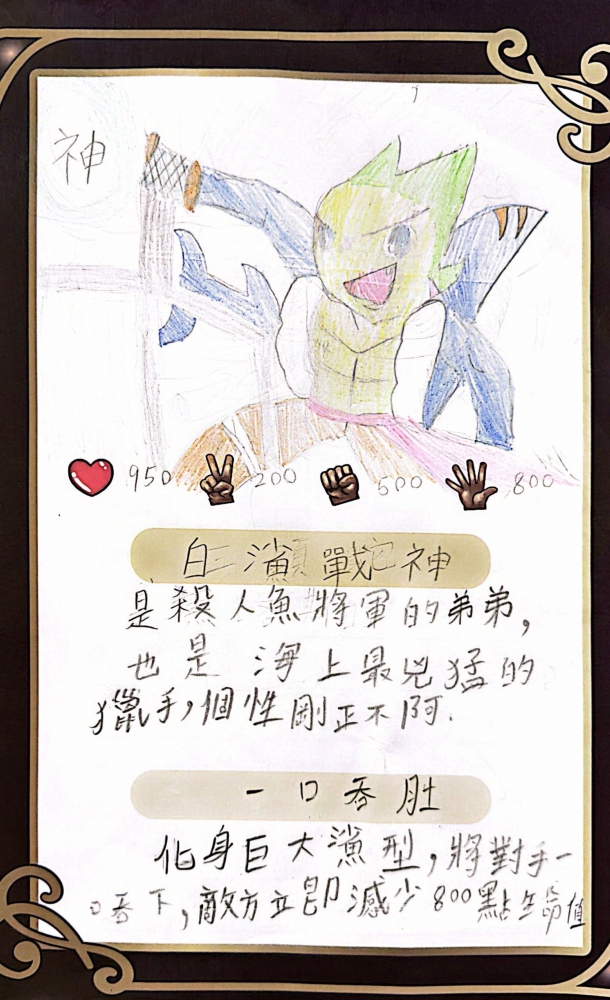 神
950 200 500 800
白鯊戰神
是殺人魚將軍的弟弟,
也是海上最兇猛的
獵手,個性剛正不阿.
一口吞肚
化身巨大鯊型,將對手一
口吞下,敵方立即減少800點生命值